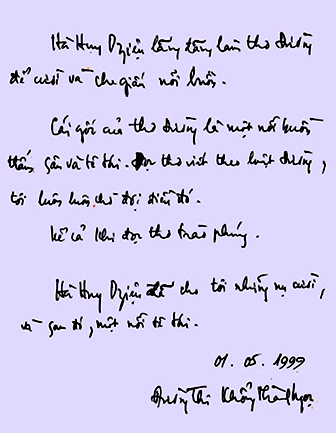 Hà Huy Diệm lẳng lặng làm thơ Đường
để cười và che giấu nỗi buồn.
Cái gốc của thơ Đường là một nỗi buồn
thấm sâu và tê tái. Đọc thơ viết theo luật Đường,
tôi luôn luôn chờ đợi điều đó.
Kể cả khi đọc thơ trào phúng.
Hà Huy Diệm đã cho tôi những nụ cười,
và sau đó, một nỗi tê tái.
01.05.1999